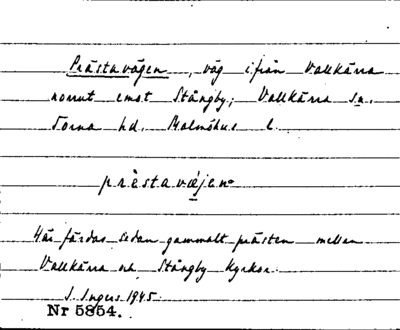 Prästavägen, väg ifrån Vallkärra
norrut emot Stångby; Vallkärra sn.
Torna hd. Malmöhus l.
prèstavæjen
Här färdas sedan gammalt prästen mellan
Vallkärra och Stångby kyrkor.
I. Ingers 1945.
Nr 5854.